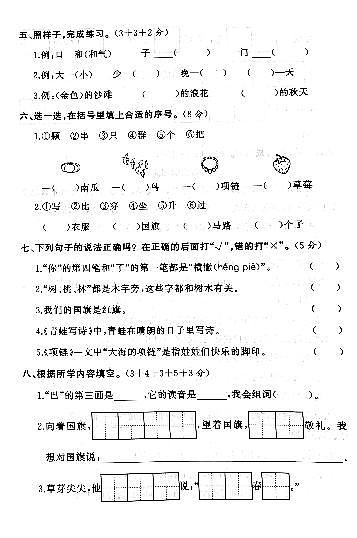 五、照样子,完成练习。(3+3+2分)
1.例:口 和(和气) 子 ___( ) 门 ___( )
2.例:大—(小) 少—( ) 晚—( ) ( )—天
3.例:(金色)的沙滩 ( )的浪花 ( )的秋天
六、选一选,在括号里填上合适的序号。(8分)
1.①颗 ②串 ③只 ④群 ⑤个 ⑥把
一( )南瓜 一( )鸟 一( )项链 一( )草莓
2.①写 ②出 ③穿 ④坐 ⑤升 ⑥过
( )衣服 ( )国旗 ( )马路 ( )个子
七、下列句子的说法正确吗?在正确的后面打“√”,错的打“×”。(5分)
1.“你”的第四笔和“了”的第一笔都是“横撇(héng piě)”。 ( )
2.“树、桃、林”都是木字旁,这些字都和树木有关。 ( )
3.我们的国旗是红旗。 ( )
4.《青蛙写诗》中,青蛙在晴朗的日子里写诗。 ( )
5.《项链》一文中“大海的项链”是指娃娃们快乐的脚印。 ( )
八、根据所学内容填空。(3+4+3+5+3分)
1.“巴”的第三画是____,它的读音是____,我会组词( )。
2.向着国旗, ,望着国旗, 敬礼。我
想对国旗说:
3.草芽尖尖,他 说:“ 春 。”